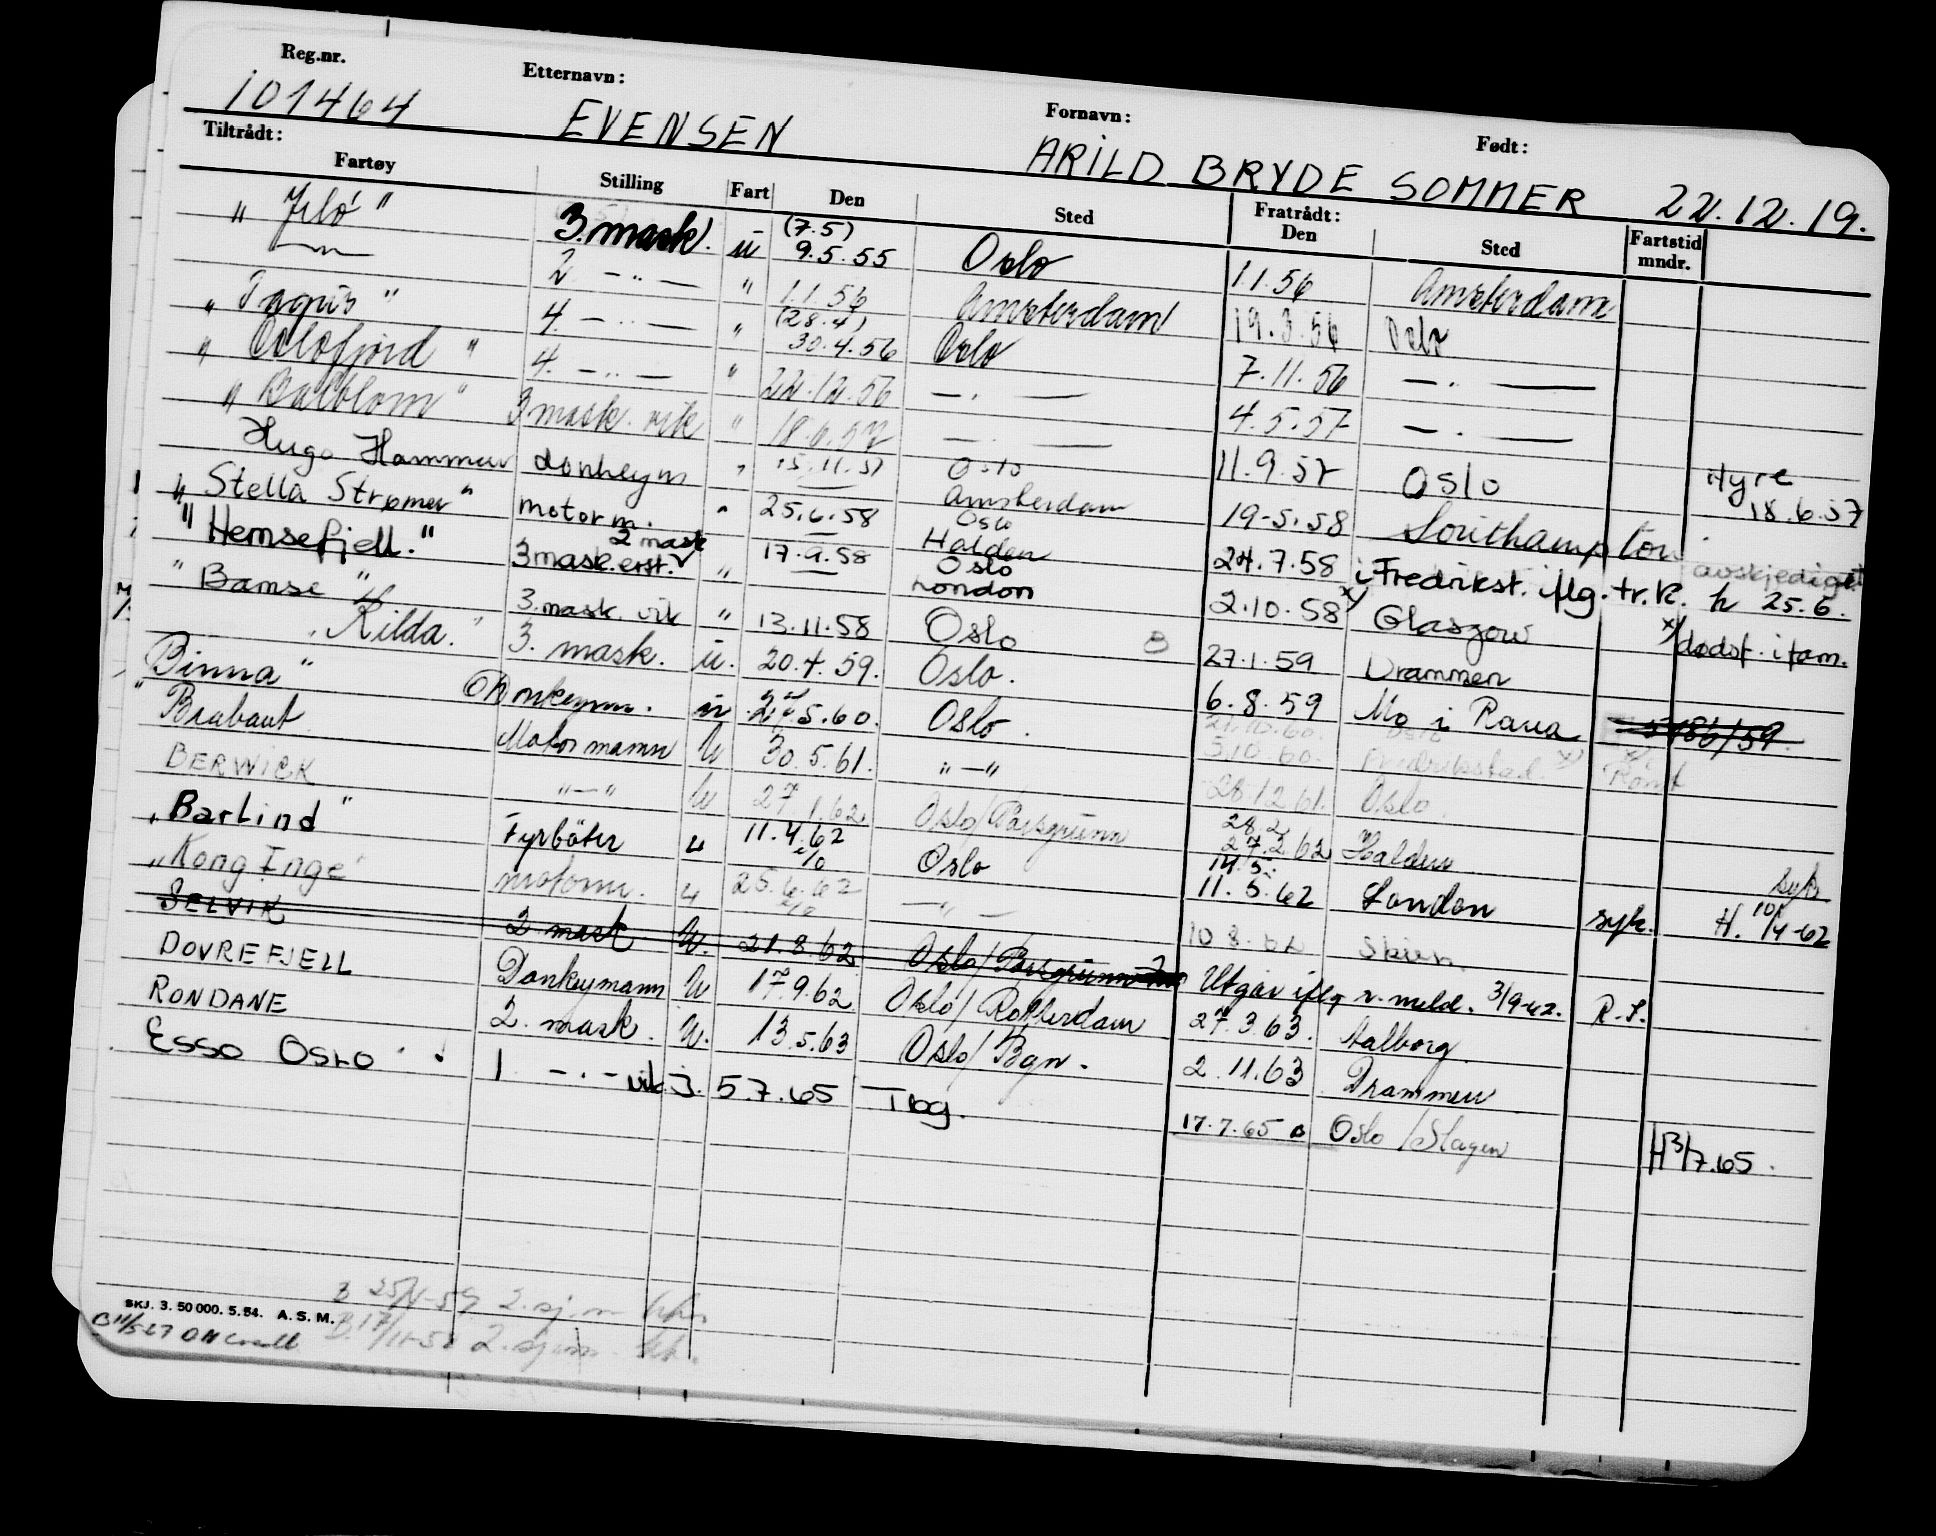 Reg.nr. Etternavn: Fornavn: Født:
101464 EVENSEN ARILD BRYDE SOMMER 22.12.19.
Tiltrådt: Fratrådt:
Fartøy Stilling Fart Den Sted Den Sted Fartstid mndr.
" Jrlo " 3. mask. u (7.5) 9.5.55 Oslo 1.1.56 Amsterdam
— " — 2 — " — " 1.1.56 Amsterdam 19.3.56 Oslo
" " 4 — " — " (28.4) 30.4.56 Oslo 7.11.56 — " —
" Oslofjord " 4. — " — " 22.12.56 — " — 4.5.57 — " —
" Balblom " 3 mask. vik " 18.6.57 — " — 11.9.57 Oslo Hyre 18.6.57
Hugo Hammer donkeym " 15.11.57 Oslo Amsterdam 19-5.58 Southampton
" Stella Strømer " motorm. " 25.6.58 Oslo Halden 24.7.58 i Fredrikst. iflg. tr.k. avskjediget h 25.6.
" Hemsefjell. " 3 mask. erst. 2 mask " 17.9.58 Oslo London 2.10.58 x/ Glasgow x/ dødsf. i fam.
" Bamse " 3. mask. vik " 13.11.58 Oslo B 27.1.59 Drammen
" Kilda. " 3. mask. u. 20.4.59. Oslo. 6.8.59 Mo i Rana
Binna " Donkeym. u 5.60. Oslo. 5.10.60. Fredrikstad x) x) Rømt
" Brabant Motormann U 30.5.61. " — " 28.12.61. Oslo
BERWICK " — " U 27.1.62 Oslo/Porsgrunn 28.2 27.2.62 Halden
" Barlind " Fyrbøter u 11.4.62 Oslo 14.5. 11.5.62 London syk. syk H. 10/4-62
" Kong Inge " motorm. u 25.6.62 — " — 10.8.62 Skien
SELVIK 2 mask U. 21.8.62 Oslo/Porsgrunn Utgår iflg r. meld. 3/9-62. R.S.
DOVREFJELL Donkeymann U 17.9.62 Oslo/Rotterdam 27.3.63. Aalborg.
RONDANE 2. mask. U. 13.5.63 Oslo/Bgn. 2.11.63 Drammen
Esso Oslo 1 — " — vik J. 5.7.65 Tbg. 17.7.65 Oslo/Slagen H 3/7.65.
SKJ. 3. 50 000. 5. 54. A. S. M.